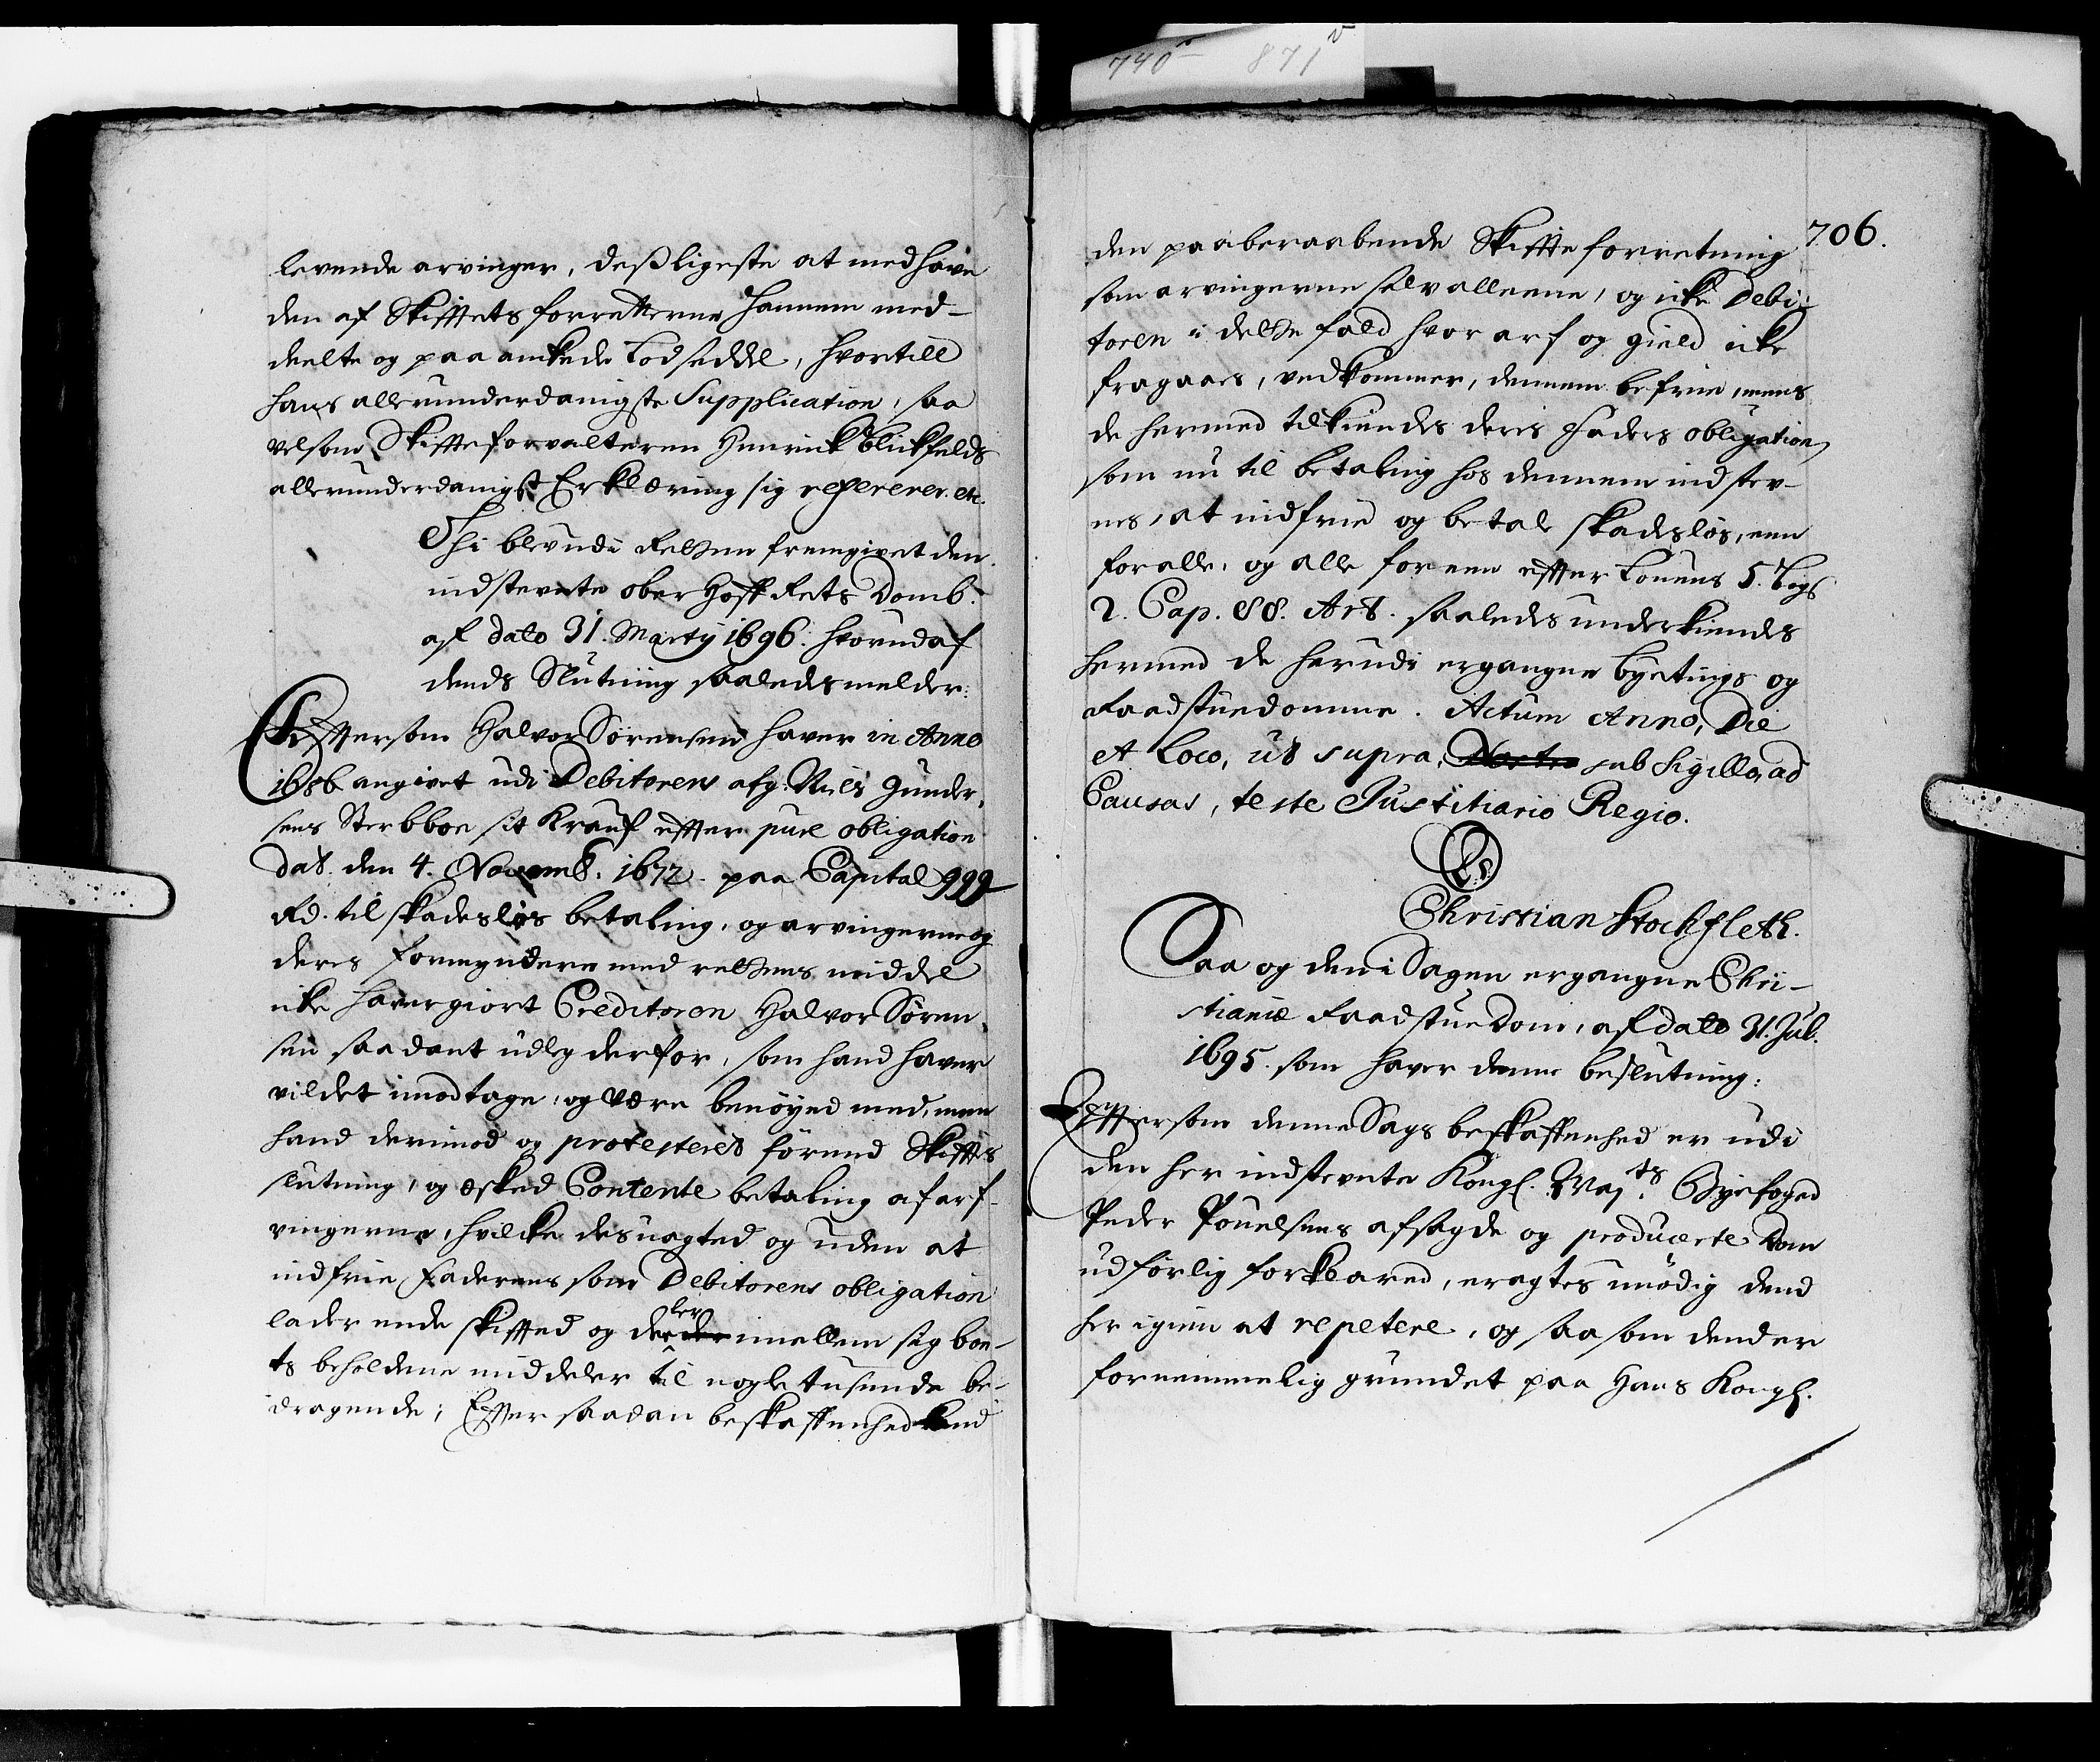 740 871v
levende arvinger, desligeste at med have
den af Skifftets forretterne hannem med-
deelte og paaankede Lodseddel, hvortill
hans allerunderdanigste Supplication, saa
velsom Skiffteforvalteren Henrick Blickfelds
allerunderdanigst Erklæring sig refererer. etc.
Thi blev udi Retten fremgivet den
indstevnte ober Hoff Rets Domb.
af dato 31. Marty 1696. hvorudaf
dends Slutning saaledes melder:
Efftersom Halvor Sörensen haver in Anno
1686 angivet udi Debitorens afg. Niels Gunder-
sens Sterbboe sit Krauf effter pure obligation
dat. den 4. Novemb. 1672. paa Capital 999
Rd. til skadeslös betaling, og arvingerne og
deres formyndere med rettens middel
icke haver giort Creditoren Halvor Sören-
sen saadant udleg derfor, som hand haver
vildet imodtage, og være benöyed med, men
hand derimod og protesteret förend Skifftes
slutning, og æsked Contente betaling af arf-
vingerne, hvilcke desuagted og uden at
indfrie Faderens som Debitorens obligation
lader ende skiffted og deeler imellem sig boe-
ts beholdene middeler til nogle tusende be-
dragende; Effter saadan beskaffenhed kand
706.
den paaberaabende Skiffteforretning
som arvingerne selv alleene, og icke Debi-
toren i dette fald hvor arf og gield icke
fragaaes, vedkommer, dennem befrie, mens
de hermed tilkiendes deris Faders obligation,
som nu til betaling hos dennem indstev-
nes, at indfrie og betale skadeslös, een
for alle, og alle for een effter Louens 5. Bogs
2. Cap. 88. Art. saaledes underkiendes
hermed de herudi ergangne byetings og
Raadstuedomme. Actum Anno, Die
et Loco, ut supra, Nostro sub Sigillo, ad
Causas, teste Justitiario Regio.
L.S.
Christian Stockfleth.
Saa og den i Sagen ergangne Chri-
stianiæ Raadstue Dom, af dato 31. Jul.
1695. som haver denne beslutning:
Efftersom denne Sags beskaffenhed er udi
den her indstevnte Kongl. Maj.ts Byefoged
Peder Pouelsens afsagde og producerte Dom
udförlig forklared, eragtes unödig dend
her igien at repetere, og saasom dend er
fornemmelig grundet paa Hans Kongl.